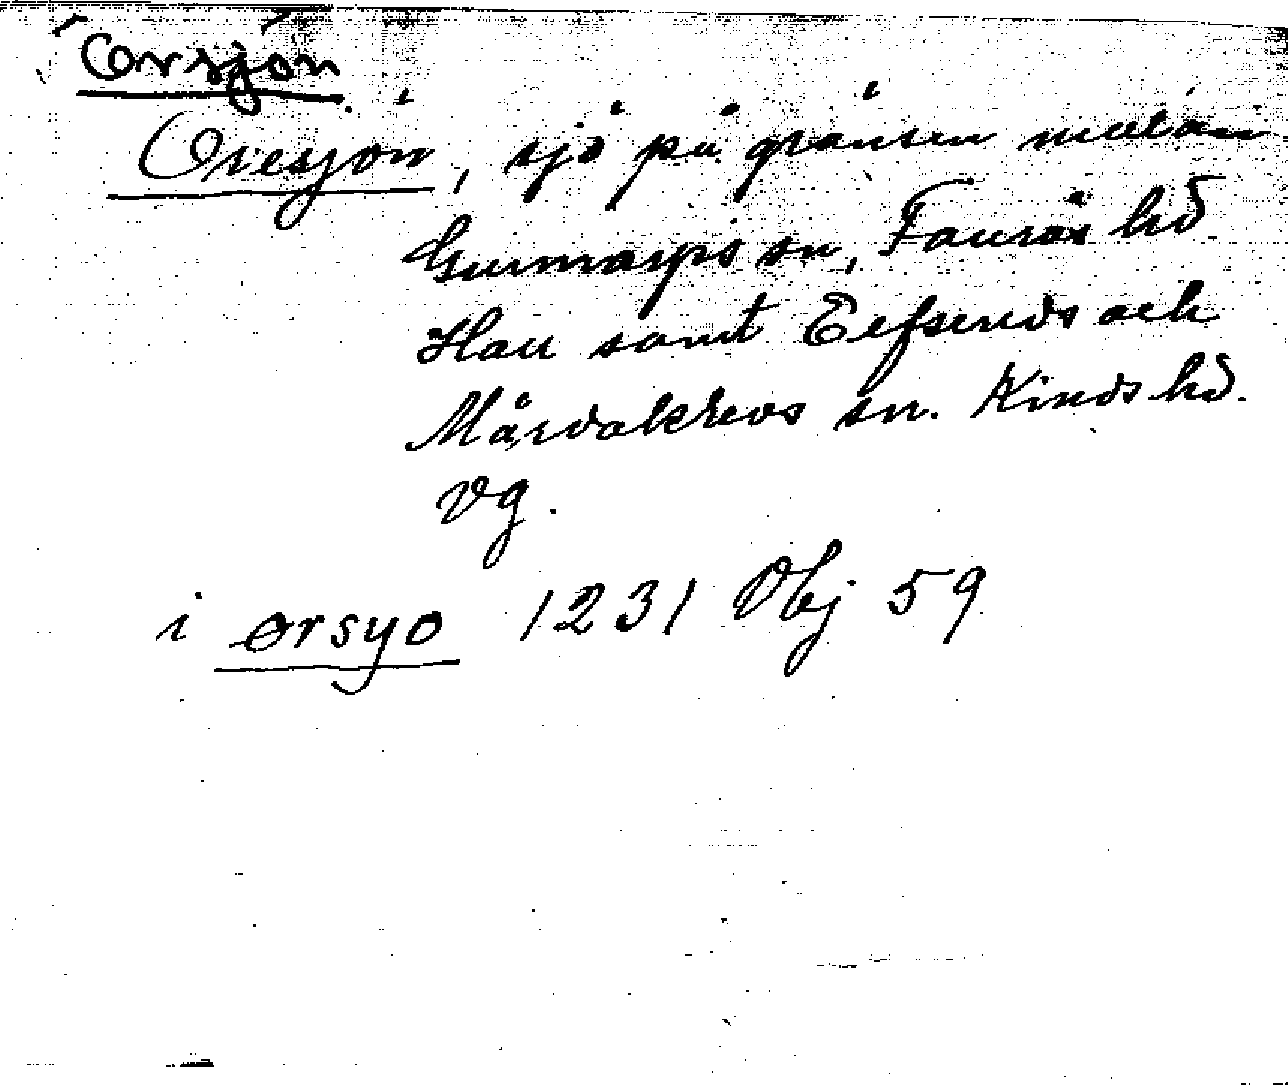 Örsjön
Öresjön, sjö på gränsen mellan
Gunnarps sn, Faurås hd
Hall samt Elfsereds och
Mårdaklevs sn. Kinds hd.
Vg.
i ørsyo 1231 Obj 59